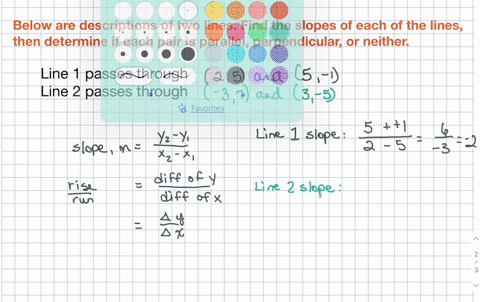 Below are descriptions of two lines. Find the slopes of each of the lines,
then determine if each pair is parallel, perpendicular, or neither.
Line 1 passes through (2, 5) and (5, -1)
Line 2 passes through (-3, 7) and (3, -5)
Favorites
slope, m = y₂-y₁ / x₂-x₁
Line 1 slope: 5 ++1 / 2 - 5 = 6 / -3 = -2
rise / run = diff of y / diff of x
Line 2 slope:
= Δy / Δx
2
3